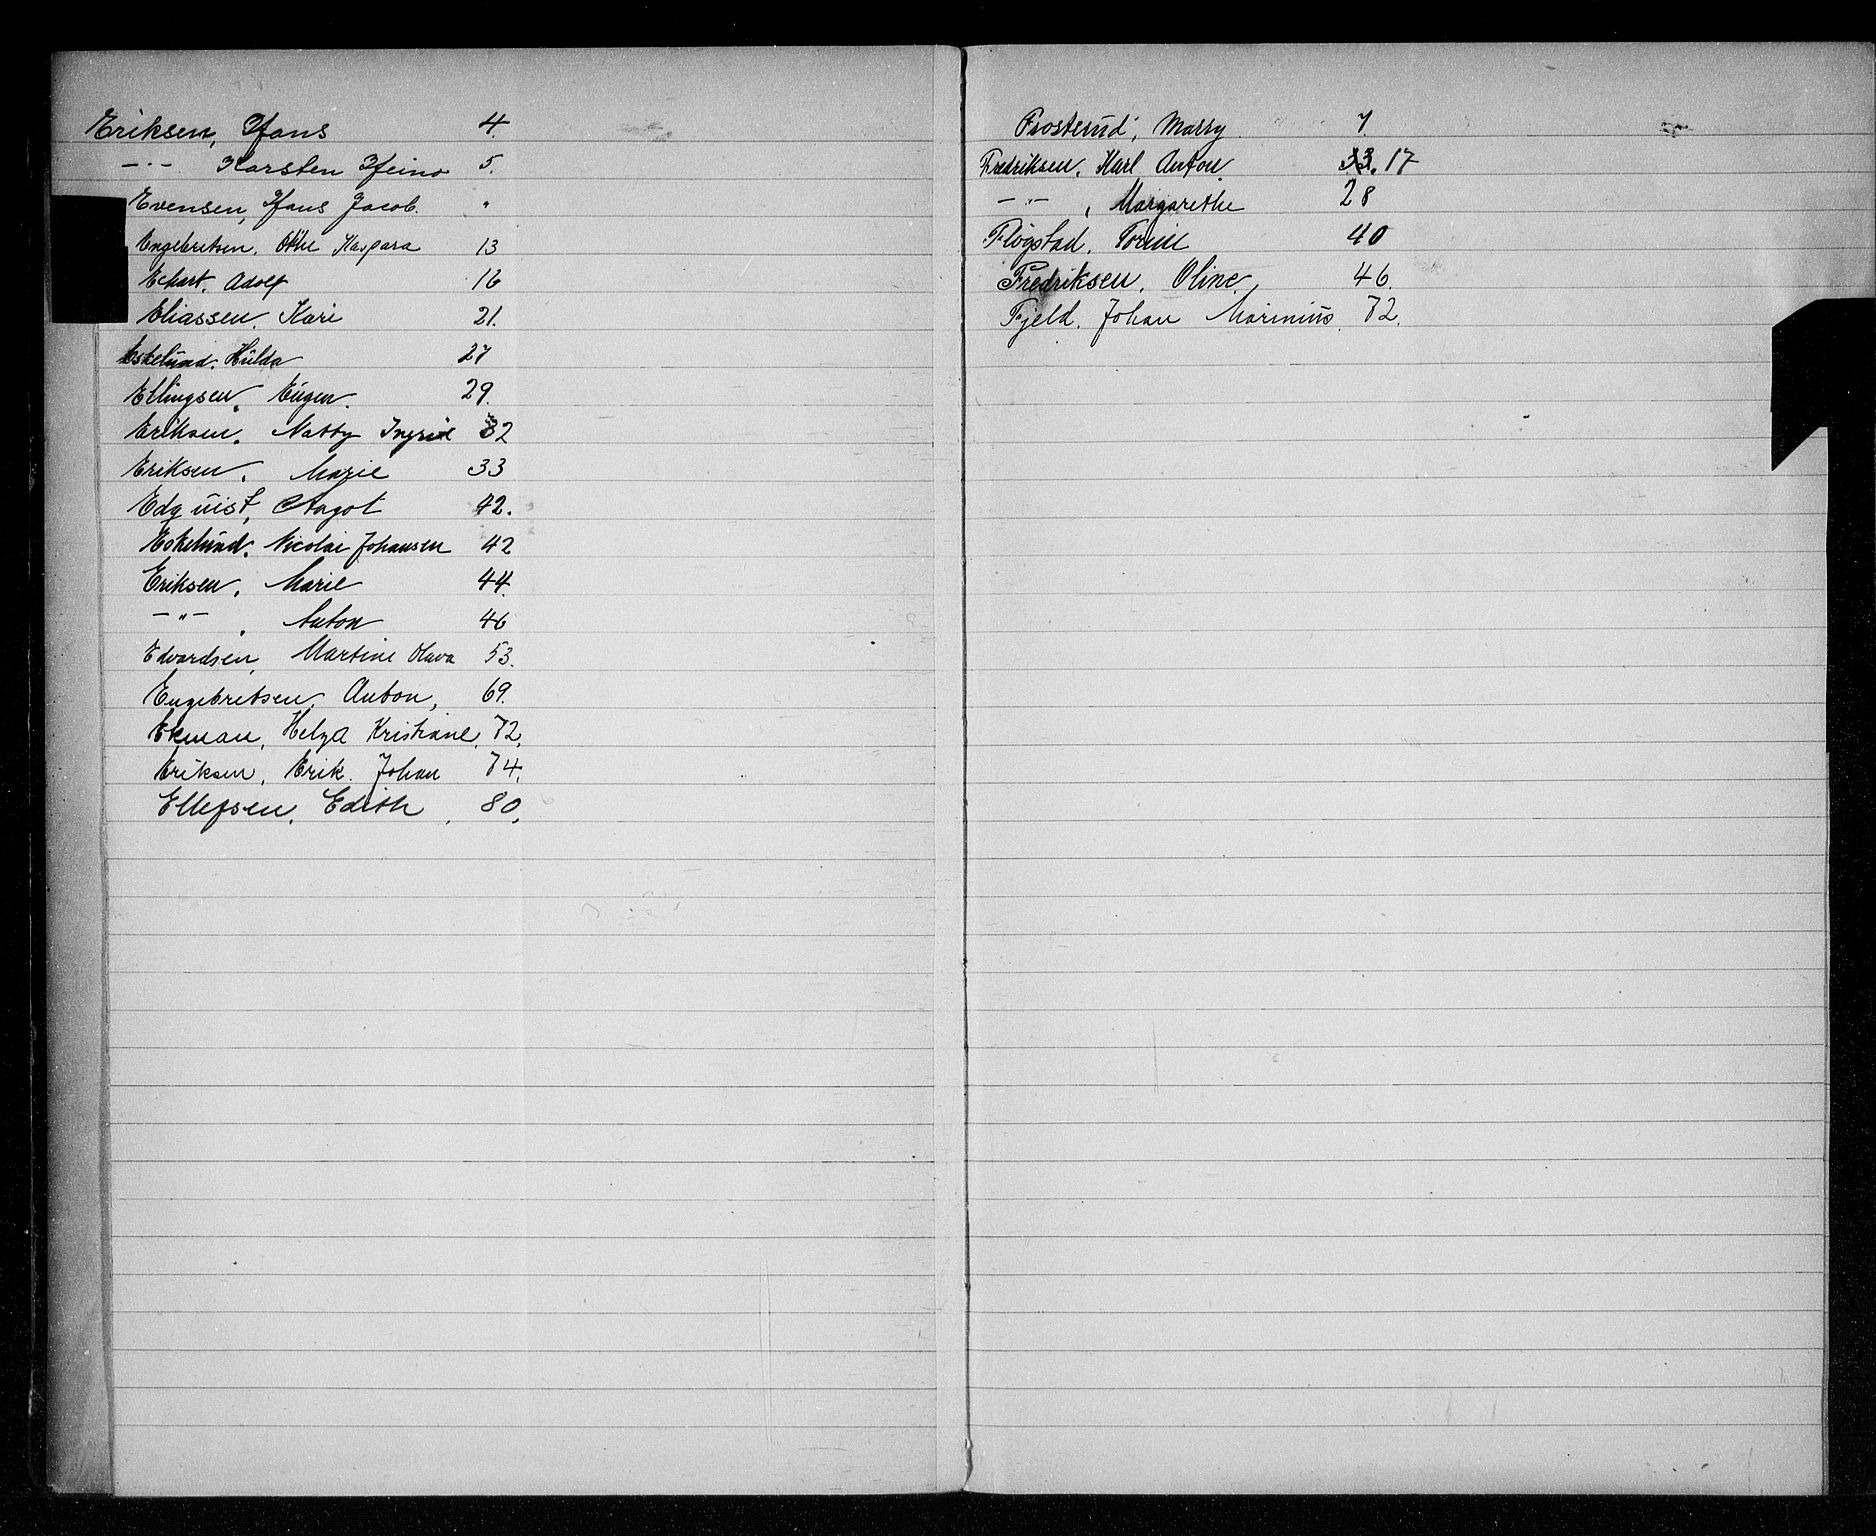 Eriksen, Hans 4.
— " — Karsten Heino 5.
Evensen, Hans Jacob. "
Engebretsen. Kaspara 13
Eckart. Adolf 16
Eliassen. Kari 21.
Eskelund. Hulda 27
Ellingsen. Eugen. 29.
Eriksen. Nabby Ingrid 32
Eriksen. Marie 33
Edquist, Aagot 42.
Eskelund. Nicolai Johansen 42
Eriksen. Marie 44.
— " — . Anton 46
Edvardsen, Martine Olava 53.
Engebretsen, Anton, 69.
Ekman, Helga Kristiane, 72.
Eriksen, Erik. Johan 74.
Ellefsen, Edith, 80.
Frosterud, Marry 7.
Fredriksen. Karl Anton. 33. 17
— " — , Margarethe 28
Flogstad. 40
Fredriksen. Oline, 46.
Fjeld. Johan Marinius. 72.